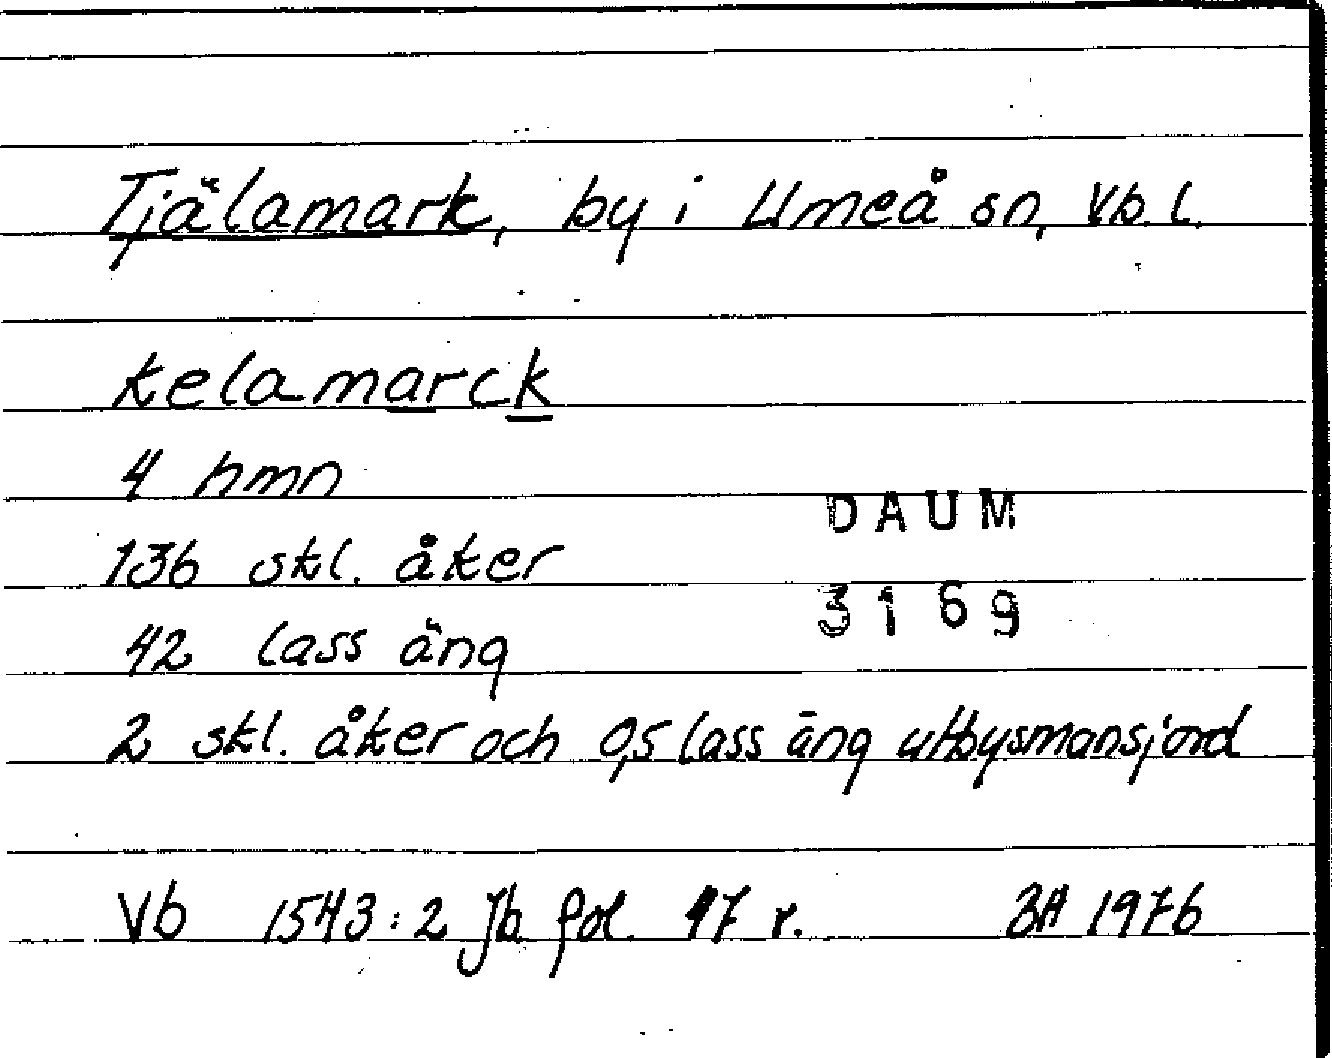 Tjälamark, by i Umeå sn, Vb. l.
kelamarck
4 hmn
DAUM
136 skl. åker
3169
42 lass äng
2 skl. åker och 0,5 lass äng utbysmansjord
Vb 1543:2 Jb fol. 17 r. BH 1976